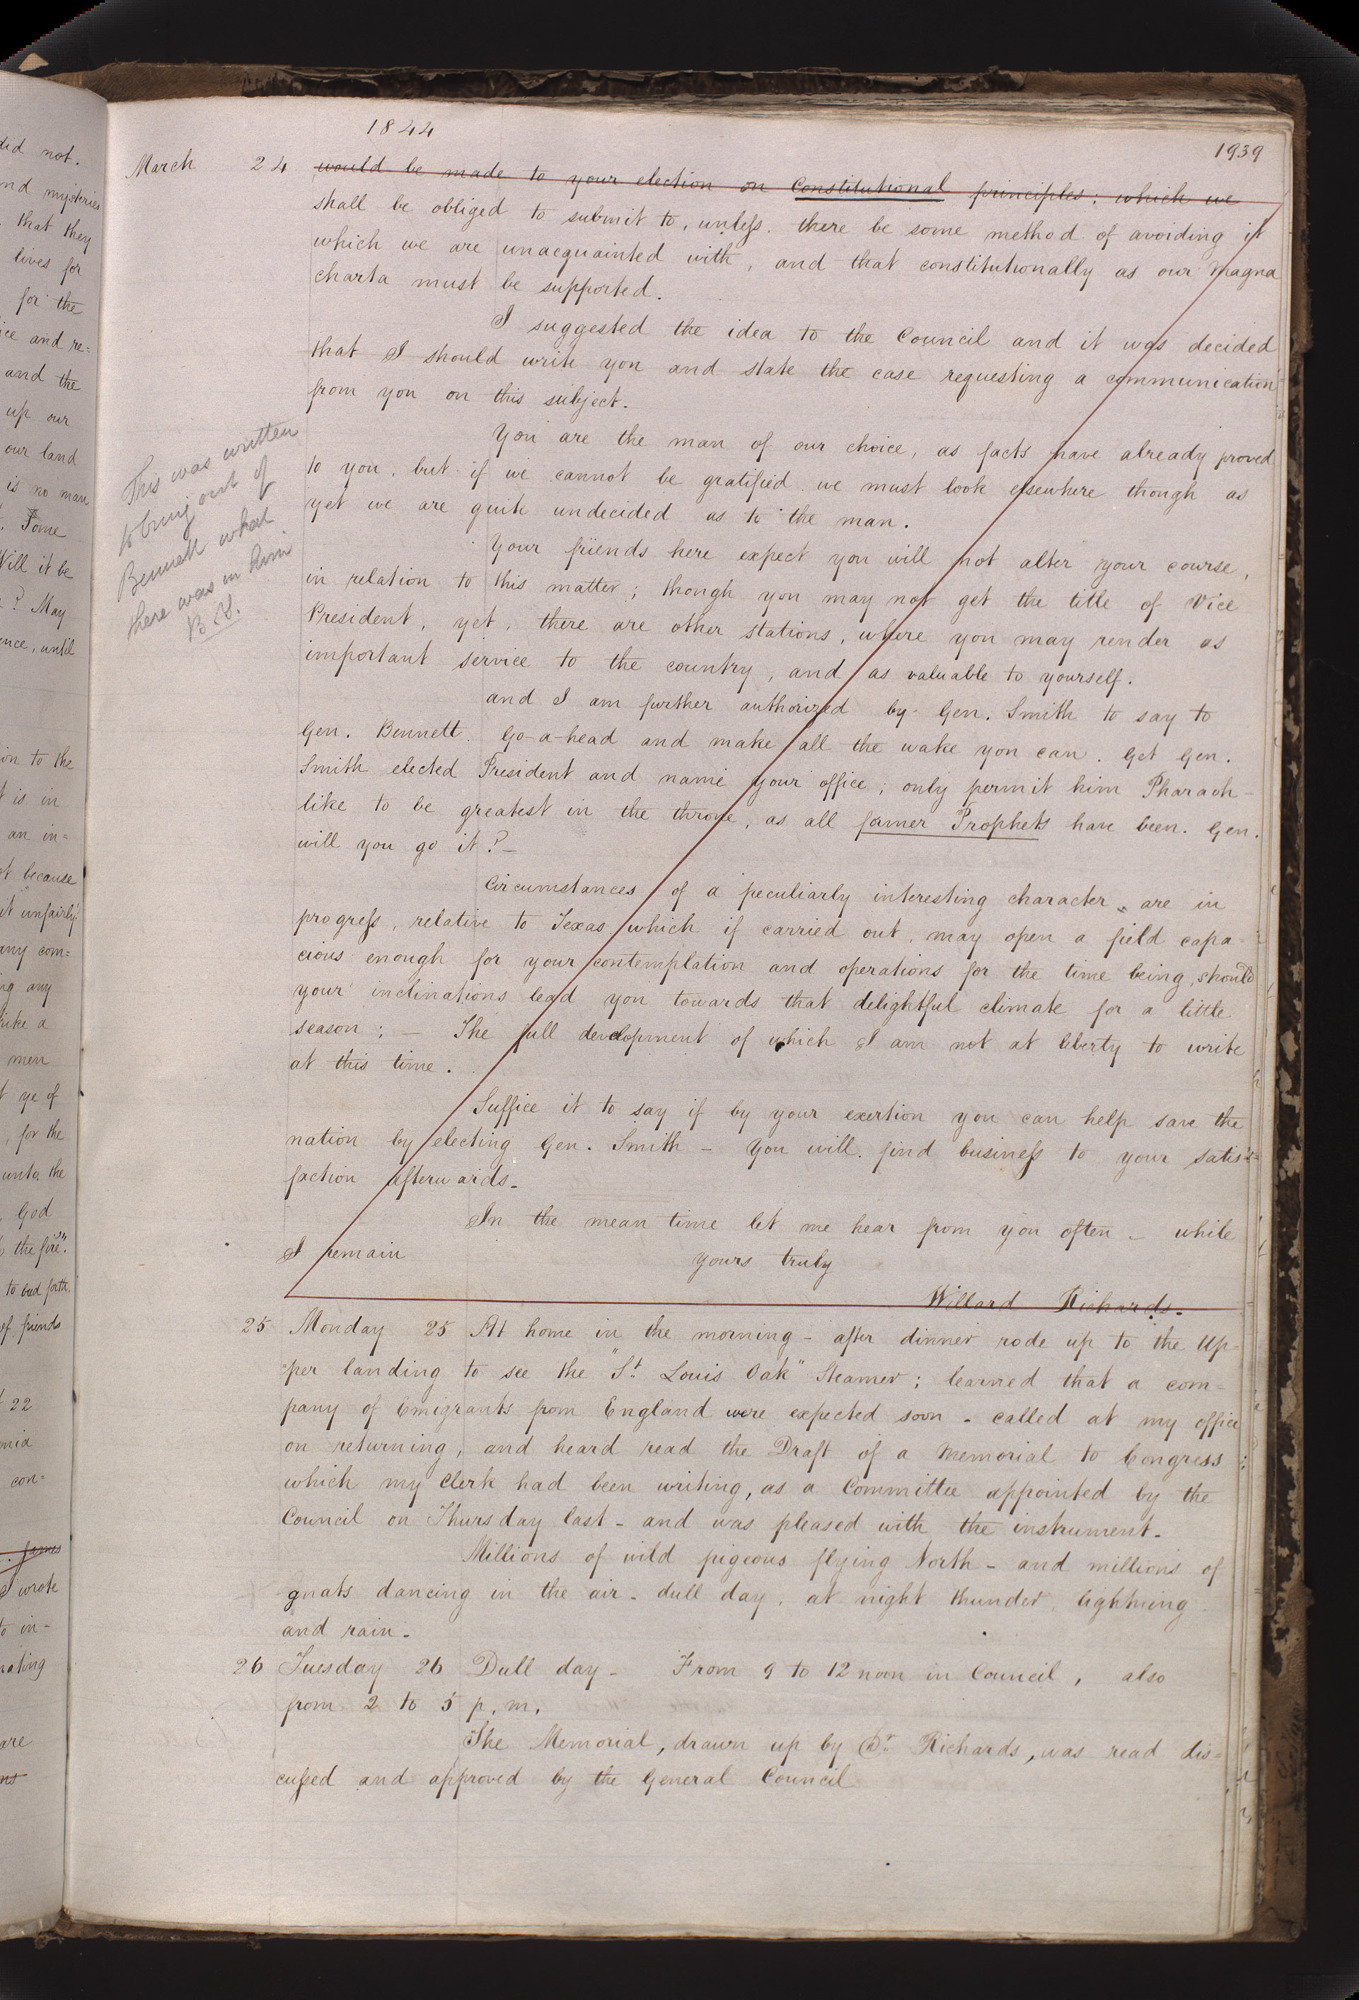 did not.
nd mysteries
that they
lives for
for the
ice and re=
and the
up our
our land
is no man
Some
Will it be
? May
ence, until
ion to the
t is in
an in=
ot because
it unfairly
any com=
ng any
like a
men
t ye of
, for the
unto the
God
the fire".
to bud forth,
of friends
22
con=
James
e wrote
to in-
nating
are
1844
1939
March 24 would be made to your election on Constitutional principles; which we
shall be obliged to submit to, unless there be some method of avoiding it
which we are unacquainted with, and that constitutionally as our Magna
charta must be supported.
I suggested the idea to the Council and it was decided
that I should write you and state the case requesting a communication
from you on this subject.
You are the man of our choice, as facts have already proved
to you, but if we cannot be gratified we must look elsewhere though as
yet we are quite undecided as to the man.
Your friends here expect you will not alter your course,
in relation to this matter; though you may not get the title of Vice
President, yet, there are other stations, where you may render as
important service to the country, and as valuable to yourself.
and I am further authorized by Gen. Smith to say to
Gen. Bennett. Go-a-head and make all the wake you can. Get Gen.
Smith elected President and name your office; only permit him Pharaoh-
like to be greatest in the throne, as all former Prophets have been. Gen.
will you go it?—
Circumstances of a peculiarly interesting character, are in
progress, relative to Texas which if carried out, may open a field capa-
cious enough for your contemplation and operations for the time being, should
your inclinations lead you towards that delightful climate for a little
season; — The full development of which I am not at liberty to write
at this time.
Suffice it to say if by your exertion you can help save the
nation by electing Gen. Smith – you will find business to your satis=
faction afterwards.
In the mean time let me hear from you often – while
I remain yours truly
Willard Richards.
This was written
to bring out of
Bennett what
there was in him
25 Monday 25 At home in the morning – after dinner rode up to the Up-
per landing to see the "St. Louis Oak" Steamer; learned that a com=
pany of Emigrants from England were expected soon – called at my office
on returning, and heard read the Draft of a Memorial to Congress;
which my clerk had been writing, as a Committee appointed by the
Council on Thursday last – and was pleased with the instrument.
Millions of wild pigeons flying North – and millions of
gnats dancing in the air – dull day, at night thunder, lightning
and rain.
26 Tuesday 26 Dull day – From 9 to 12 noon in Council, also
from 2 to 5 p.m.
The Memorial, drawn up by Dr. Richards, was read dis=
cussed and approved by the General Council